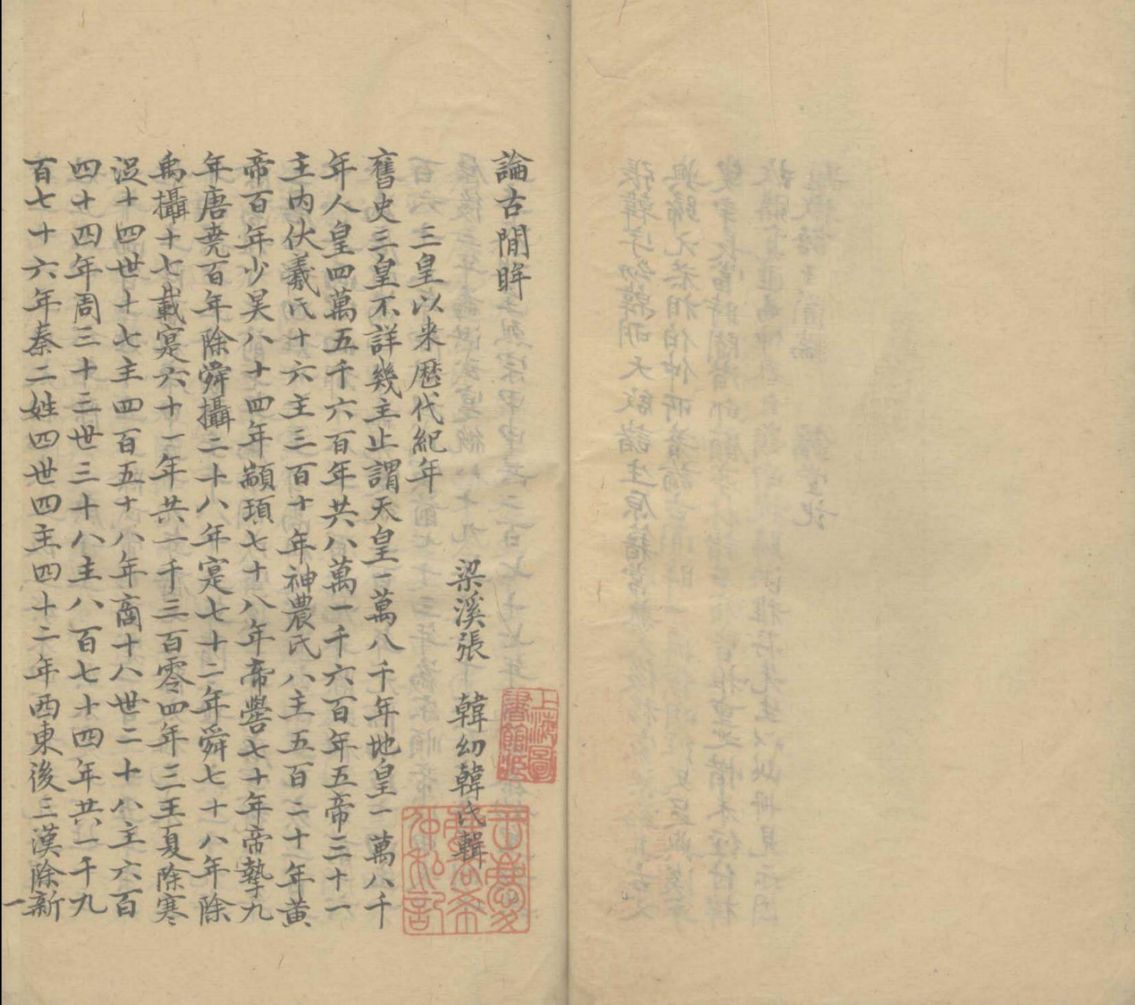 論古閒眸
三皇以来歷代紀年
梁溪張 韓幻韓氏輯
舊史三皇不詳幾主止謂天皇一萬八千年地皇一萬八千
年人皇四萬五千六百年共八萬一千六百年五帝三十一
主内伏羲氏十六主三百十年神農氏八主五百二十年黃
帝百年少昊八十四年顓頊七十八年帝嚳七十年帝摯九
年唐堯百年除舜攝二十八年寔七十二年舜七十八年除
禹攝十七載寔六十一年共一千三百零四年三王夏除寒
浞十四世十七主四百五十八年商十八世二十八主六百
四十四年周三十三世三十八主八百七十四年共一千九
百七十六年秦二姓四世四主四十二年西東後三漢除新
一
上海圖書館藏